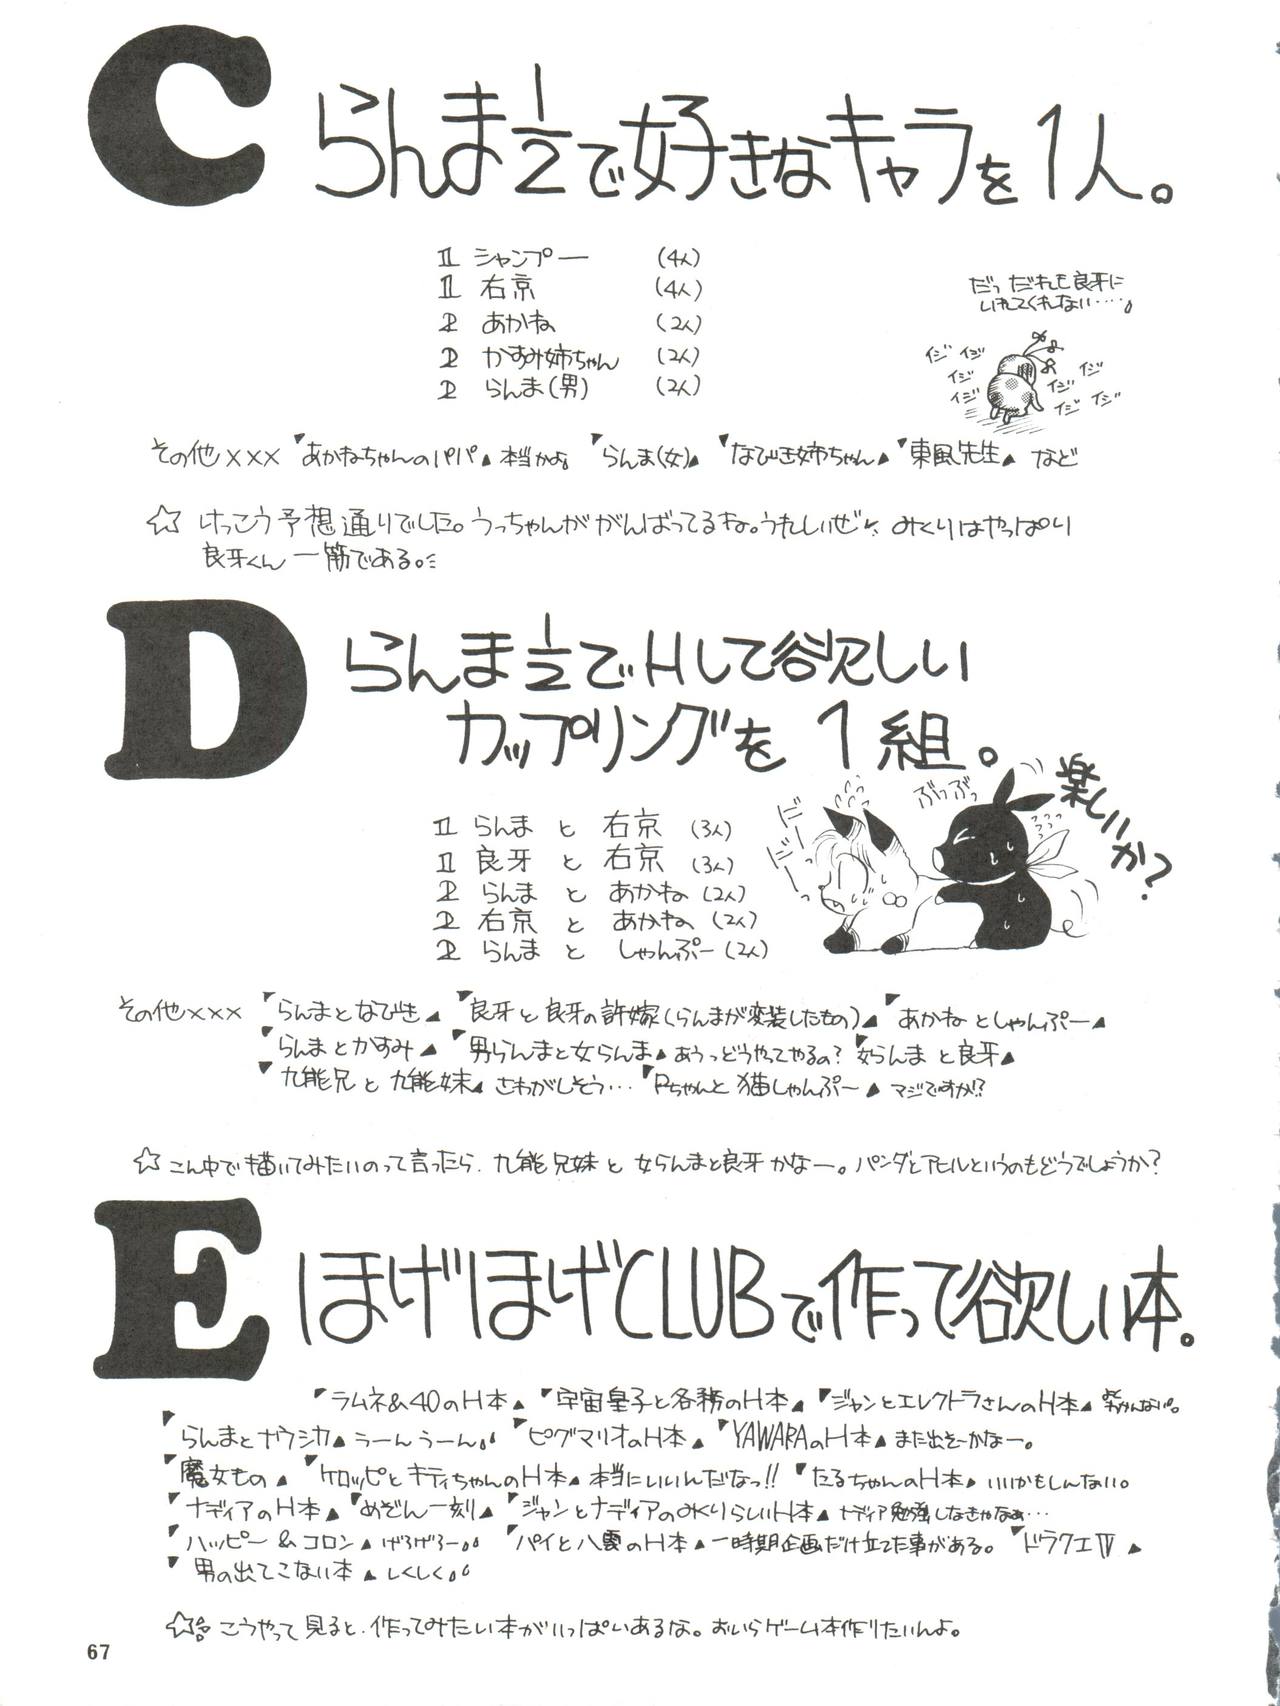 C
らんま1/2で好きなキャラを1人。
1 シャンプー (4人)
1 右京 (4人)
2 あかね (2人)
2 かすみ姉ちゃん (2人)
2 らんま(男) (2人)
だっ だれも良牙に
いれてくれない・・・・。
イジ イジ
イジ イジ イジ
イジ イジ イジ イジ
その他××× 「あかねちゃんのパパ」本当かよ。 「らんま(女)」 「なびき姉ちゃん」 「東風先生」 など
☆ けっこう予想通りでした。うっちゃんががんばってるね。うれしいぜ みくりはやっぱり
良牙くん一筋である。
D
らんま1/2でHして欲しい
カップリングを1組。
楽しいか?
ぶっぶっ
ビービーっ
1 らんま と 右京 (3人)
1 良牙 と 右京 (3人)
2 らんま と あかね (2人)
2 右京 と あかね (2人)
2 らんま と しゃんぷー (2人)
その他××× 「らんまとなびき」 「良牙と良牙の許嫁(らんまが変装したもの)」 「あかねとしゃんぷー」
「らんまとかすみ」 「男らんまと女らんま」あうっどうやってやるの? 「女らんまと良牙」
「九能兄と九能妹」さわがしそう… 「Pちゃんと猫しゃんぷー」マジですか!?
☆ こん中で描いてみたいのって言ったら、九能兄妹と女らんまと良牙かなー。パンダとアヒルというのもどうでしょうか?
E
ほげほげCLUBで作って欲しい本。
「ラムネ&40のH本」 「宇宙皇子と各務のH本」 「ジャンとエレクトラさんのH本」 笑かんない。
「らんまとナウシカ」うーんうーん。 「ピグマリオのH本」 「YAWARAのH本」また出そーかなー。
「魔女もの」 「ケロッピとキティちゃんのH本」本当にいいんだなっ!! 「たるちゃんのH本」いいかもしんない。
「ナディアのH本」 「めぞん一刻」 「ジャンとナディアのみくりらしいH本」ナディア勉強しなきゃなぁ…
「ハッピー&コロン」げろげろー。 「パイと八雲のH本」一時期企画だけ立てた事がある。 「ドラクエⅣ」
「男の出てこない本」しくしく。
☆ こうやって見ると、作ってみたい本がいっぱいあるな。おいらゲーム本作りたいんよ。
67